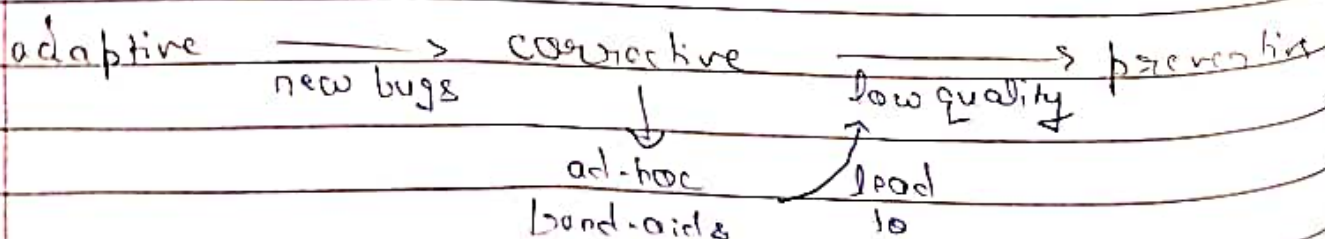 adaptive → corrective → preventive
new bugs low quality
ad-hoc lead
band-aids to